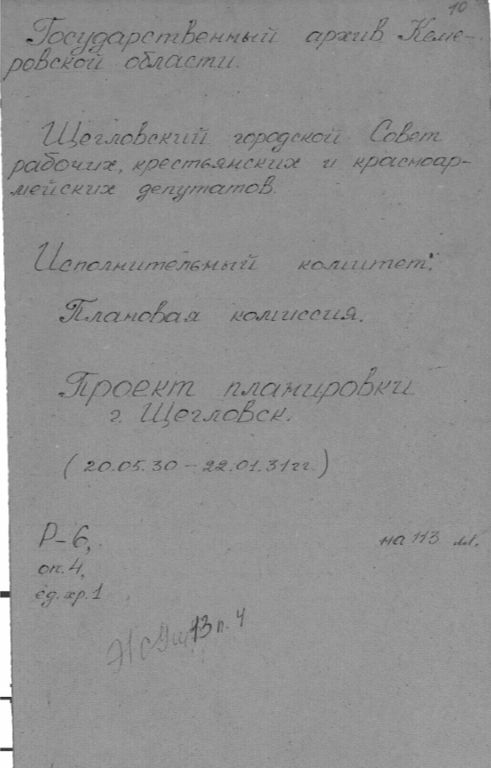 10
Государственный архив Кеме-
ровской области.
Щегловский городской Совет
рабочих, крестьянских и красноар-
мейских депутатов.
Исполнительный комитет.
Плановая комиссия.
Проект планировки
г. Щегловск.
(20.05.30 - 22.01.31гг.)
Р-6, на 113 лл.
оп.4,
ед.хр.1
13 п. 4